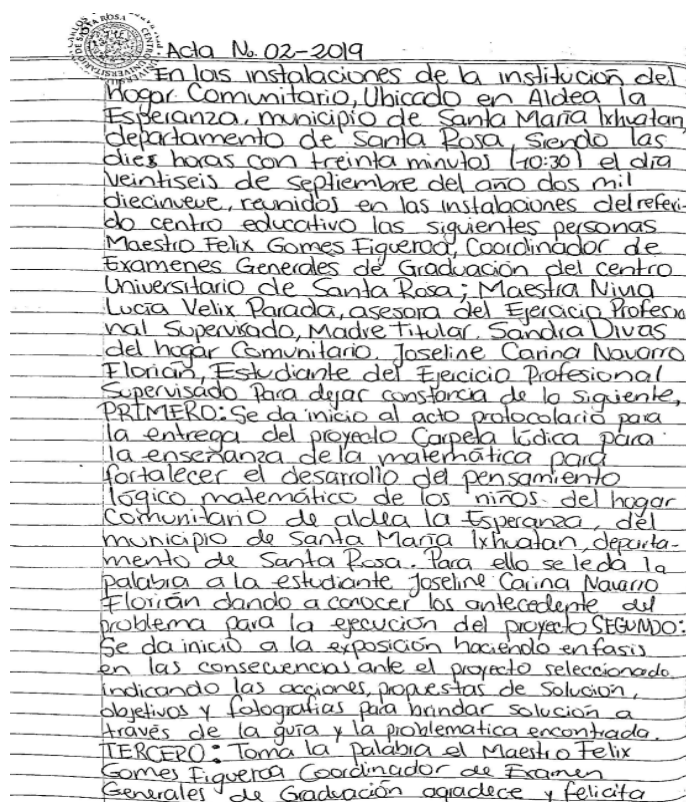 Acta No. 02-2019
En las instalaciones de la institución del
Hogar Comunitario, Ubicado en Aldea la
Esperanza, municipio de Santa María Ixhuatan,
departamento de Santa Rosa, Siendo las
dies horas con treinta minutos (10:30) el día
Veintiseis de septiembre del año dos mil
diecinueve, reunidos en las instalaciones del referi-
do centro educativo las siguientes personas
Maestro Felix Gomes Figueroa, Coordinador de
Examenes Generales de Graduación del centro
Universitario de Santa Rosa; Maestra Nina
Lucía Velix Parada, asesora del Ejercicio Profesio
nal Supervisado, Madre Titular. Sandra Divas
del hogar Comunitario. Joseline Carina Navarro
Florián, Estudiante del Ejercicio Profesional
Supervisado Para dejar constancia de lo siguiente,
PRIMERO: Se da inicio al acto protocolario para
la entrega del proyecto Carpeta lúdica para
la enseñanza de la matemática para
fortalecer el desarrollo del pensamiento
lógico matemático de los niños del hogar
Comunitario de aldea la Esperanza, del
municipio de Santa María Ixhuatan, departa-
mento de Santa Rosa. Para ello se le da la
palabra a la estudiante Joseline Carina Navarro
Florián dando a conocer los antecedente del
problema para la ejecución del proyecto SEGUNDO:
Se da inicio a la exposición haciendo enfasis
en las consecuencias ante el proyecto seleccionado,
indicando las acciones, propuestas de Solución,
objetivos y fotografías para brindar solución a
través de la guía y la problematica encontrada.
TERCERO: Toma la palabra el Maestro Felix
Gomes Figueroa Coordinador de Examen
Generales de Graduación agradece y felicita